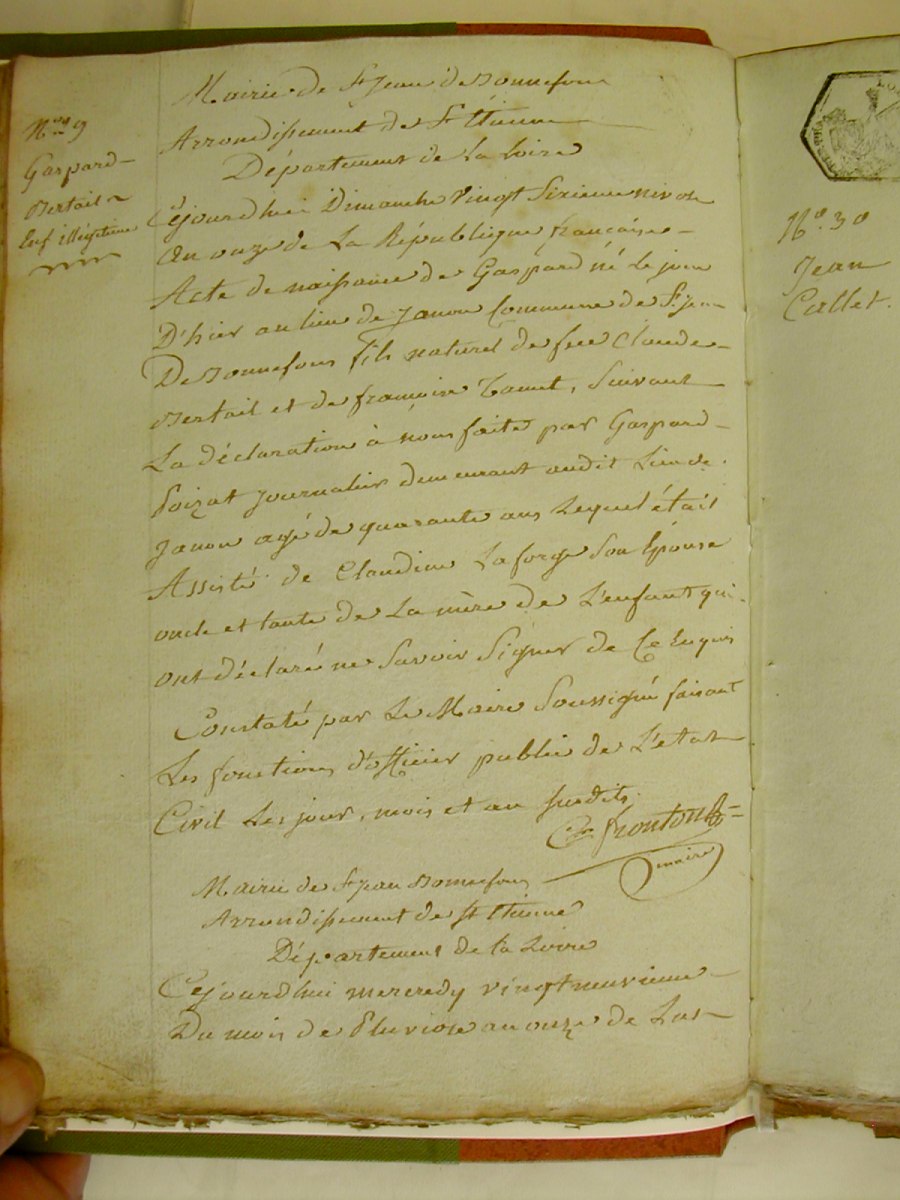 N.º 9
Gaspard
Bertail
Enf illégitime
Mairie de St Jean de Bonnefons
Arrondissement de St Etienne
Département de la Loire
Cejourdhui Dimanche vingt Sixieme nivose
an onze de La République française
Acte de naissance de Gaspard né le jour
D'hier au lieu de Janon Commune de St Jean
De Bonnefons fils naturel de feu Claude
Bertail et de françoise, Suivant
La déclaration à nous faite par Gaspard
Poizat Journalier demeurant audit Lieu de
Janon agé de quarante ans Lequel était
Assisté de Claudine Laforge Son Epouse
oncle et tante de La mère de L'enfant qui
ont déclaré ne Savoir Signer de Ce Enquis
Constaté par Le Maire Soussigné faisant
Les fonctions d'officier public de L'etat
Civil Les jour, mois et an susdits.
frontout
maire
Mairie de St Jean Bonnefons
Arrondissement de St Etienne
Département de la Loire
Cejourdhui mercredy vingt neuvieme
Du mois de Pluviose an onze de La
N.º 30
Jean
Callet.